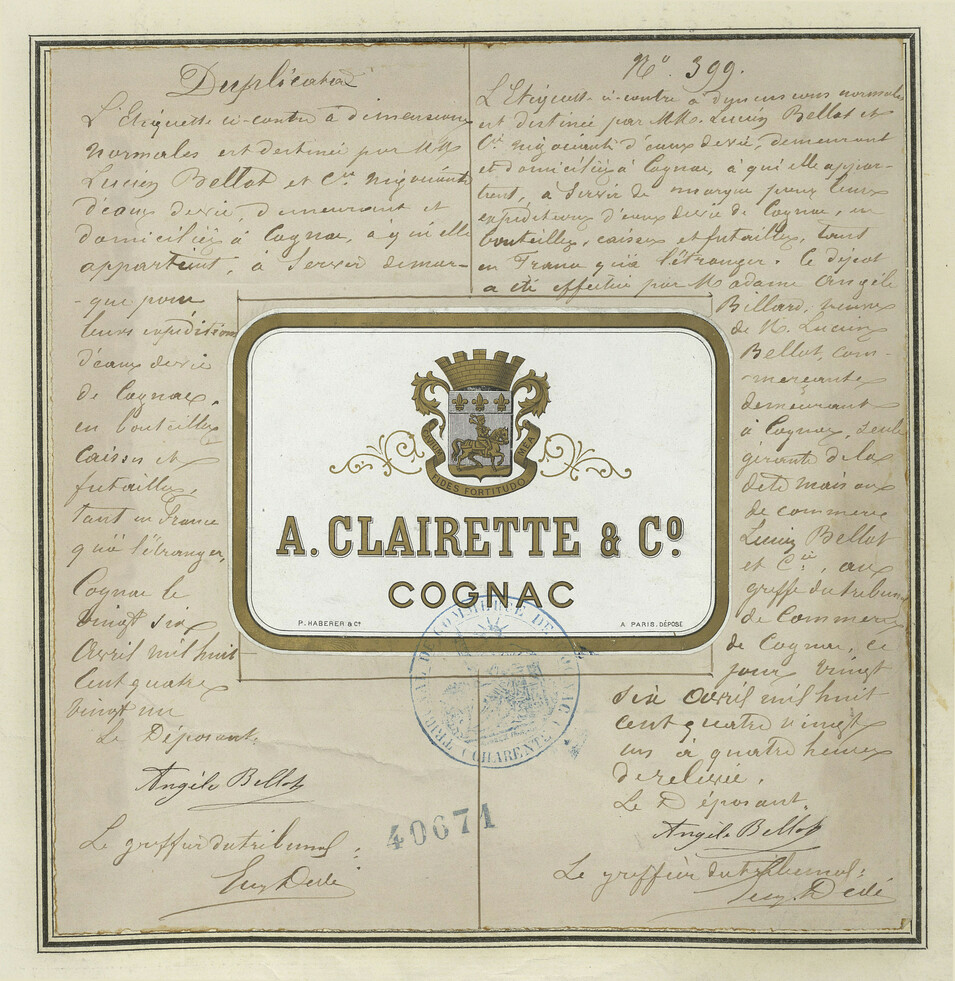 Duplicata
L'Etiquette ci-contre à dimensions
normales est destinée par MM
Lucien Bellot et Cie négociants
d'eaux de vie, demeurant et
domiciliés à Cognac, à qui elle
appartient, à Servir de mar-
-que pour
leurs expéditions
d'eaux de vie
de Cognac,
en bouteilles
caisses et
futailles,
tant en France
qu'à l'étranger,
Cognac le
vingt six
Avril mil huit
cent quatre
vingt un
Le Déposant,
Angèle Bellot
Le greffier du tribunal:
Eug. Dedé
No. 399.
L'Etiquette ci-contre à dimensions normales
est destinée par MM. Lucien Bellot et
Cie négociants d'eaux de vie, demeurant
et domiciliés à Cognac, à qui elle appar-
tient, à Servir de marque pour leurs
expéditions d'eaux de vie de Cognac, en
bouteilles, caisses et futailles, tant
en France qu'à l'étranger. Ce dépôt
a été effectué par Madame Angèle
Billard, veuve
de M. Lucien
Bellot, com-
-merçante
demeurant
à Cognac, seule
gérante de la
dite maison
de commerce
Lucien Bellot
et Cie, au
greffe du tribunal
de Commerce
de Cognac, ce
jour vingt
six avril mil huit
cent quatre vingt
un à quatre heures
de relevée.
Le Déposant
Angèle Bellot
Le greffier du tribunal:
Eug. Dedé
MEA
FIDES FORTITUDO
A. CLAIRETTE & Co.
COGNAC
P. HABERER & Cie
A PARIS. DÉPOSÉ
TRIBUNAL DE COMMERCE DE COGNAC (CHARENTE)
40671